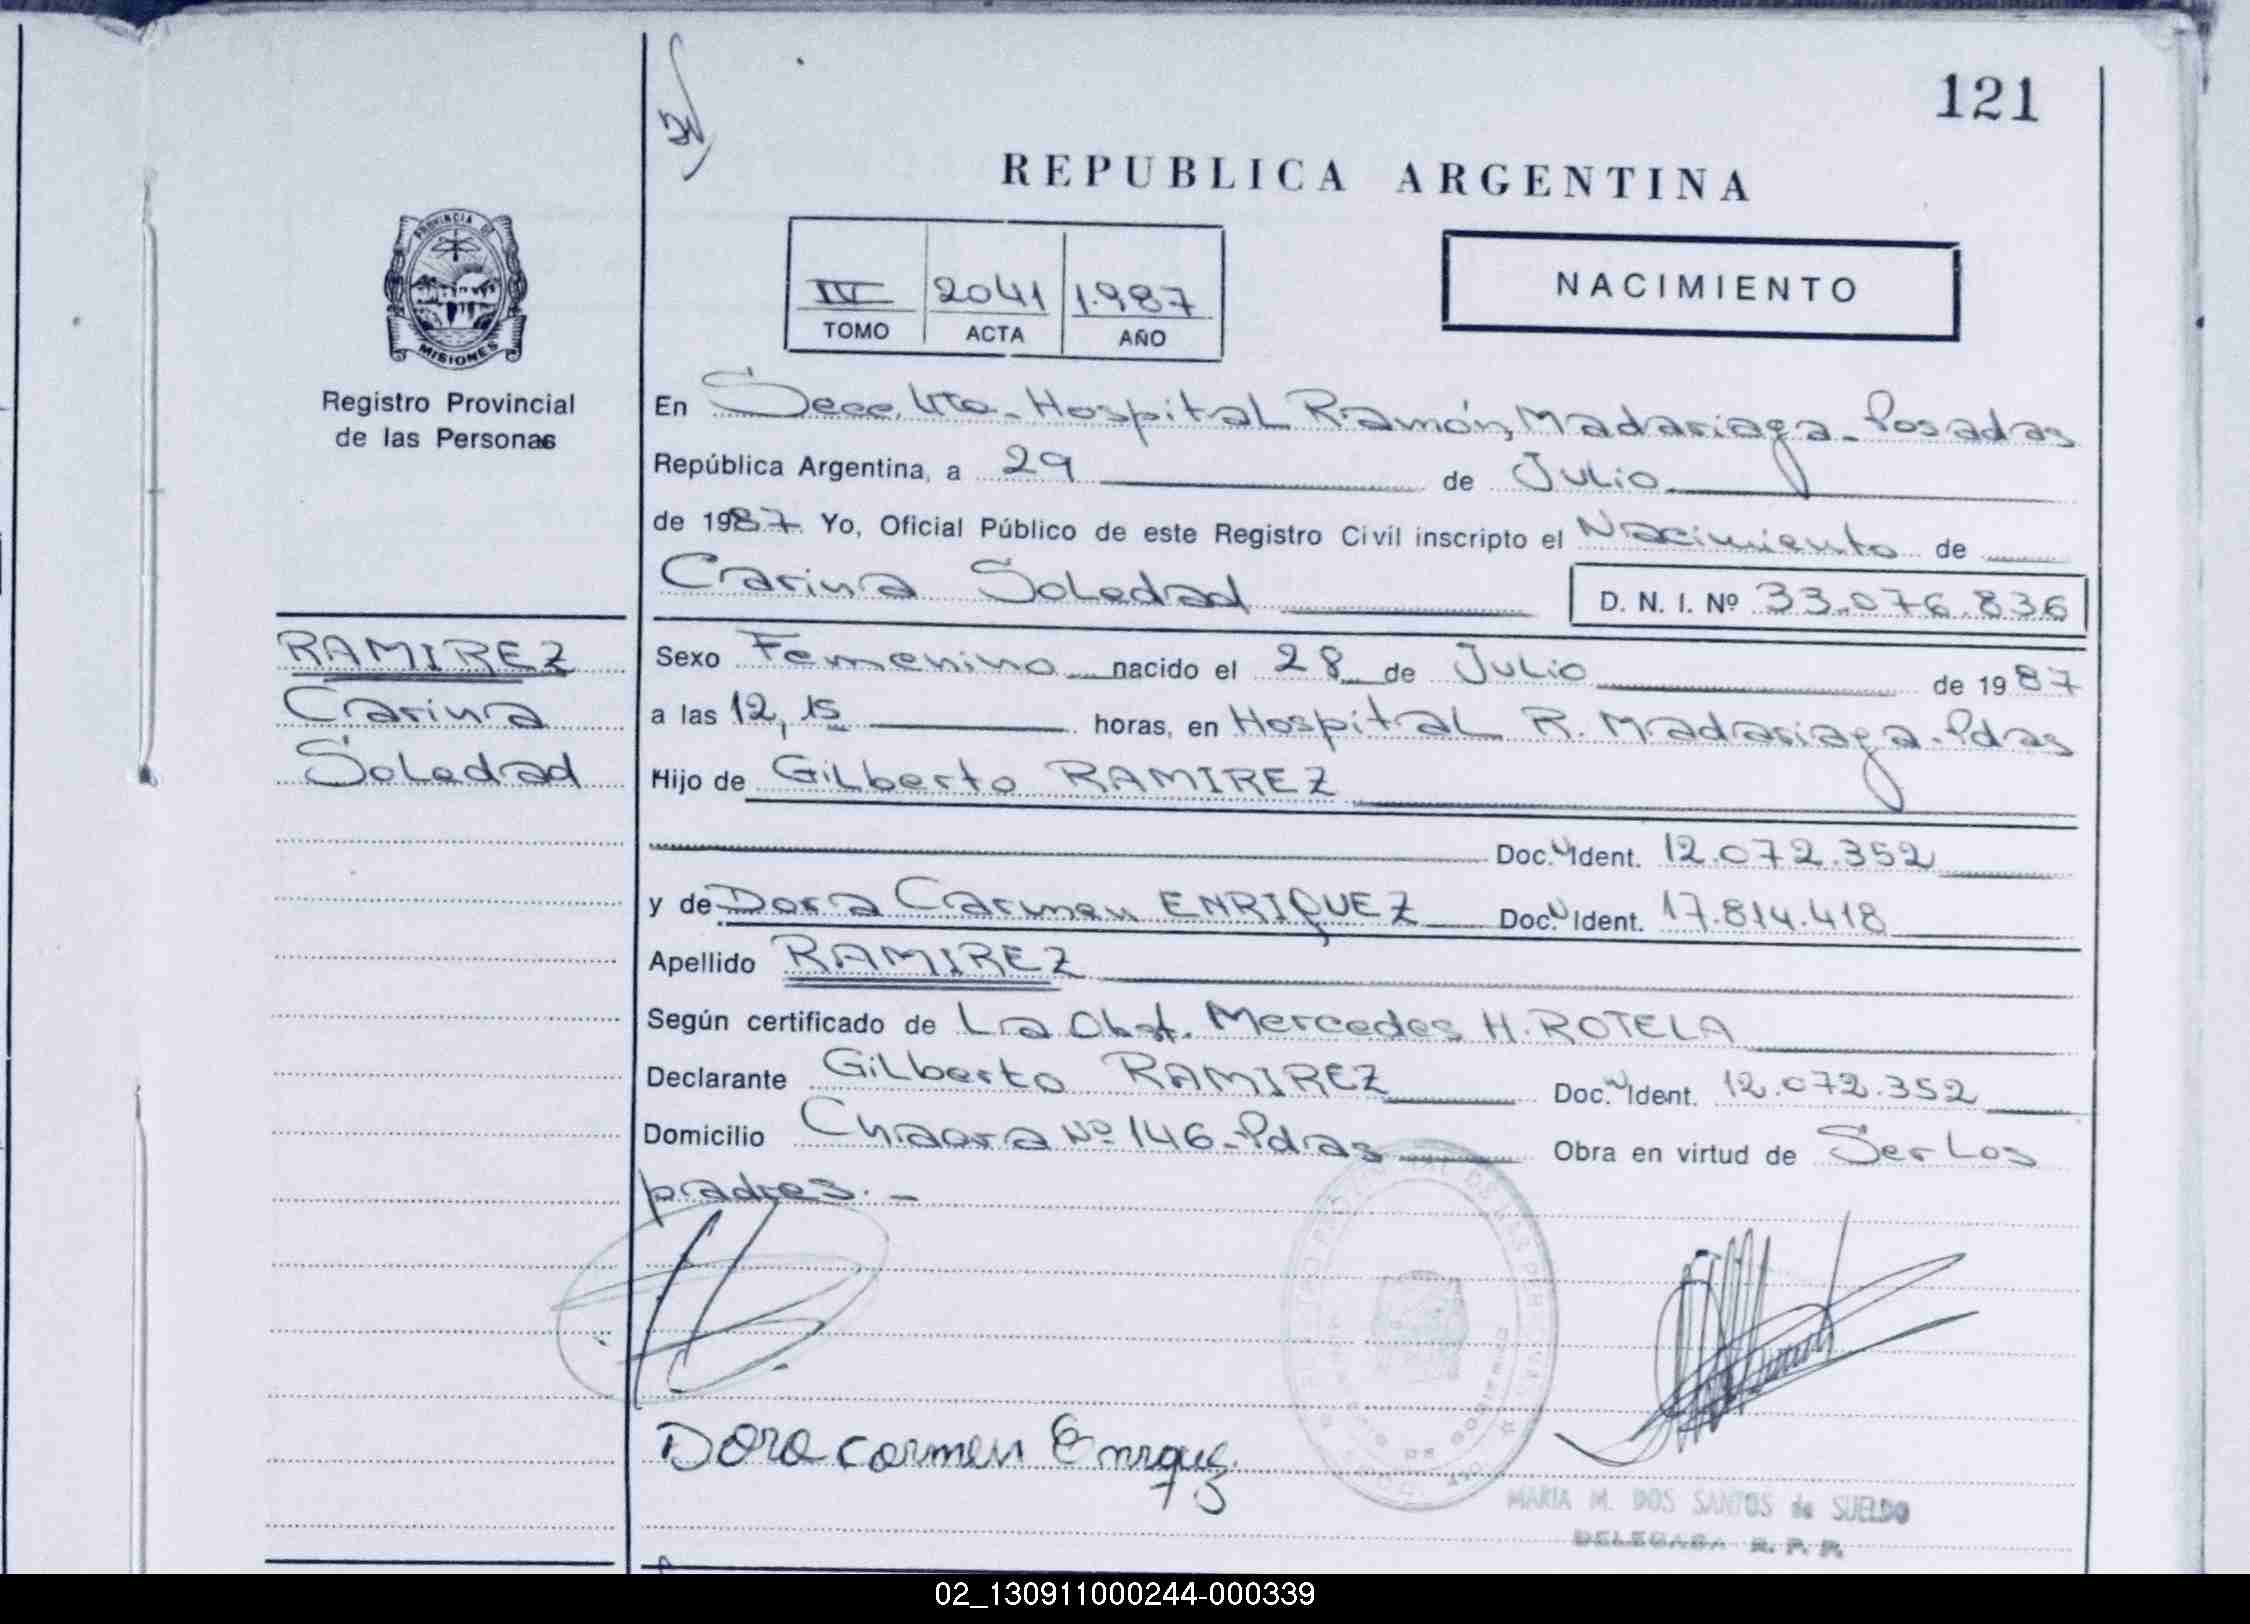 121
REPUBLICA ARGENTINA
PROVINCIA DE
MISIONES
Registro Provincial
de las Personas
IV 2041 1.987
TOMO ACTA AÑO
NACIMIENTO
En Secc. 4ta- Hospital Ramón Madariaga- Posadas
República Argentina, a 29 de Julio
de 1987 Yo, Oficial Público de este Registro Civil inscripto el Nacimiento de
Carina Soledad D. N. I. Nº 33.076.836
RAMIREZ
Carina
Soledad
Sexo Femenino nacido el 28 de Julio de 1987
a las 12,15 horas, en Hospital R. Madariaga-Pdas
Hijo de Gilberto RAMIREZ
Doc. Ident. 12.072.352
y de Dora Carmen ENRIQUEZ Doc. Ident. 17.814.418
Apellido RAMIREZ
Según certificado de La Obst. Mercedes H. ROTELA
Declarante Gilberto RAMIREZ Doc. Ident. 12.072.352
Domicilio Chacra Nº 146-Pdas Obra en virtud de Ser Los
padres.-
Dora carmen
MARIA M. DOS SANTOS de SUELDO
DELEGADA R. P. P.
02_130911000244-000339